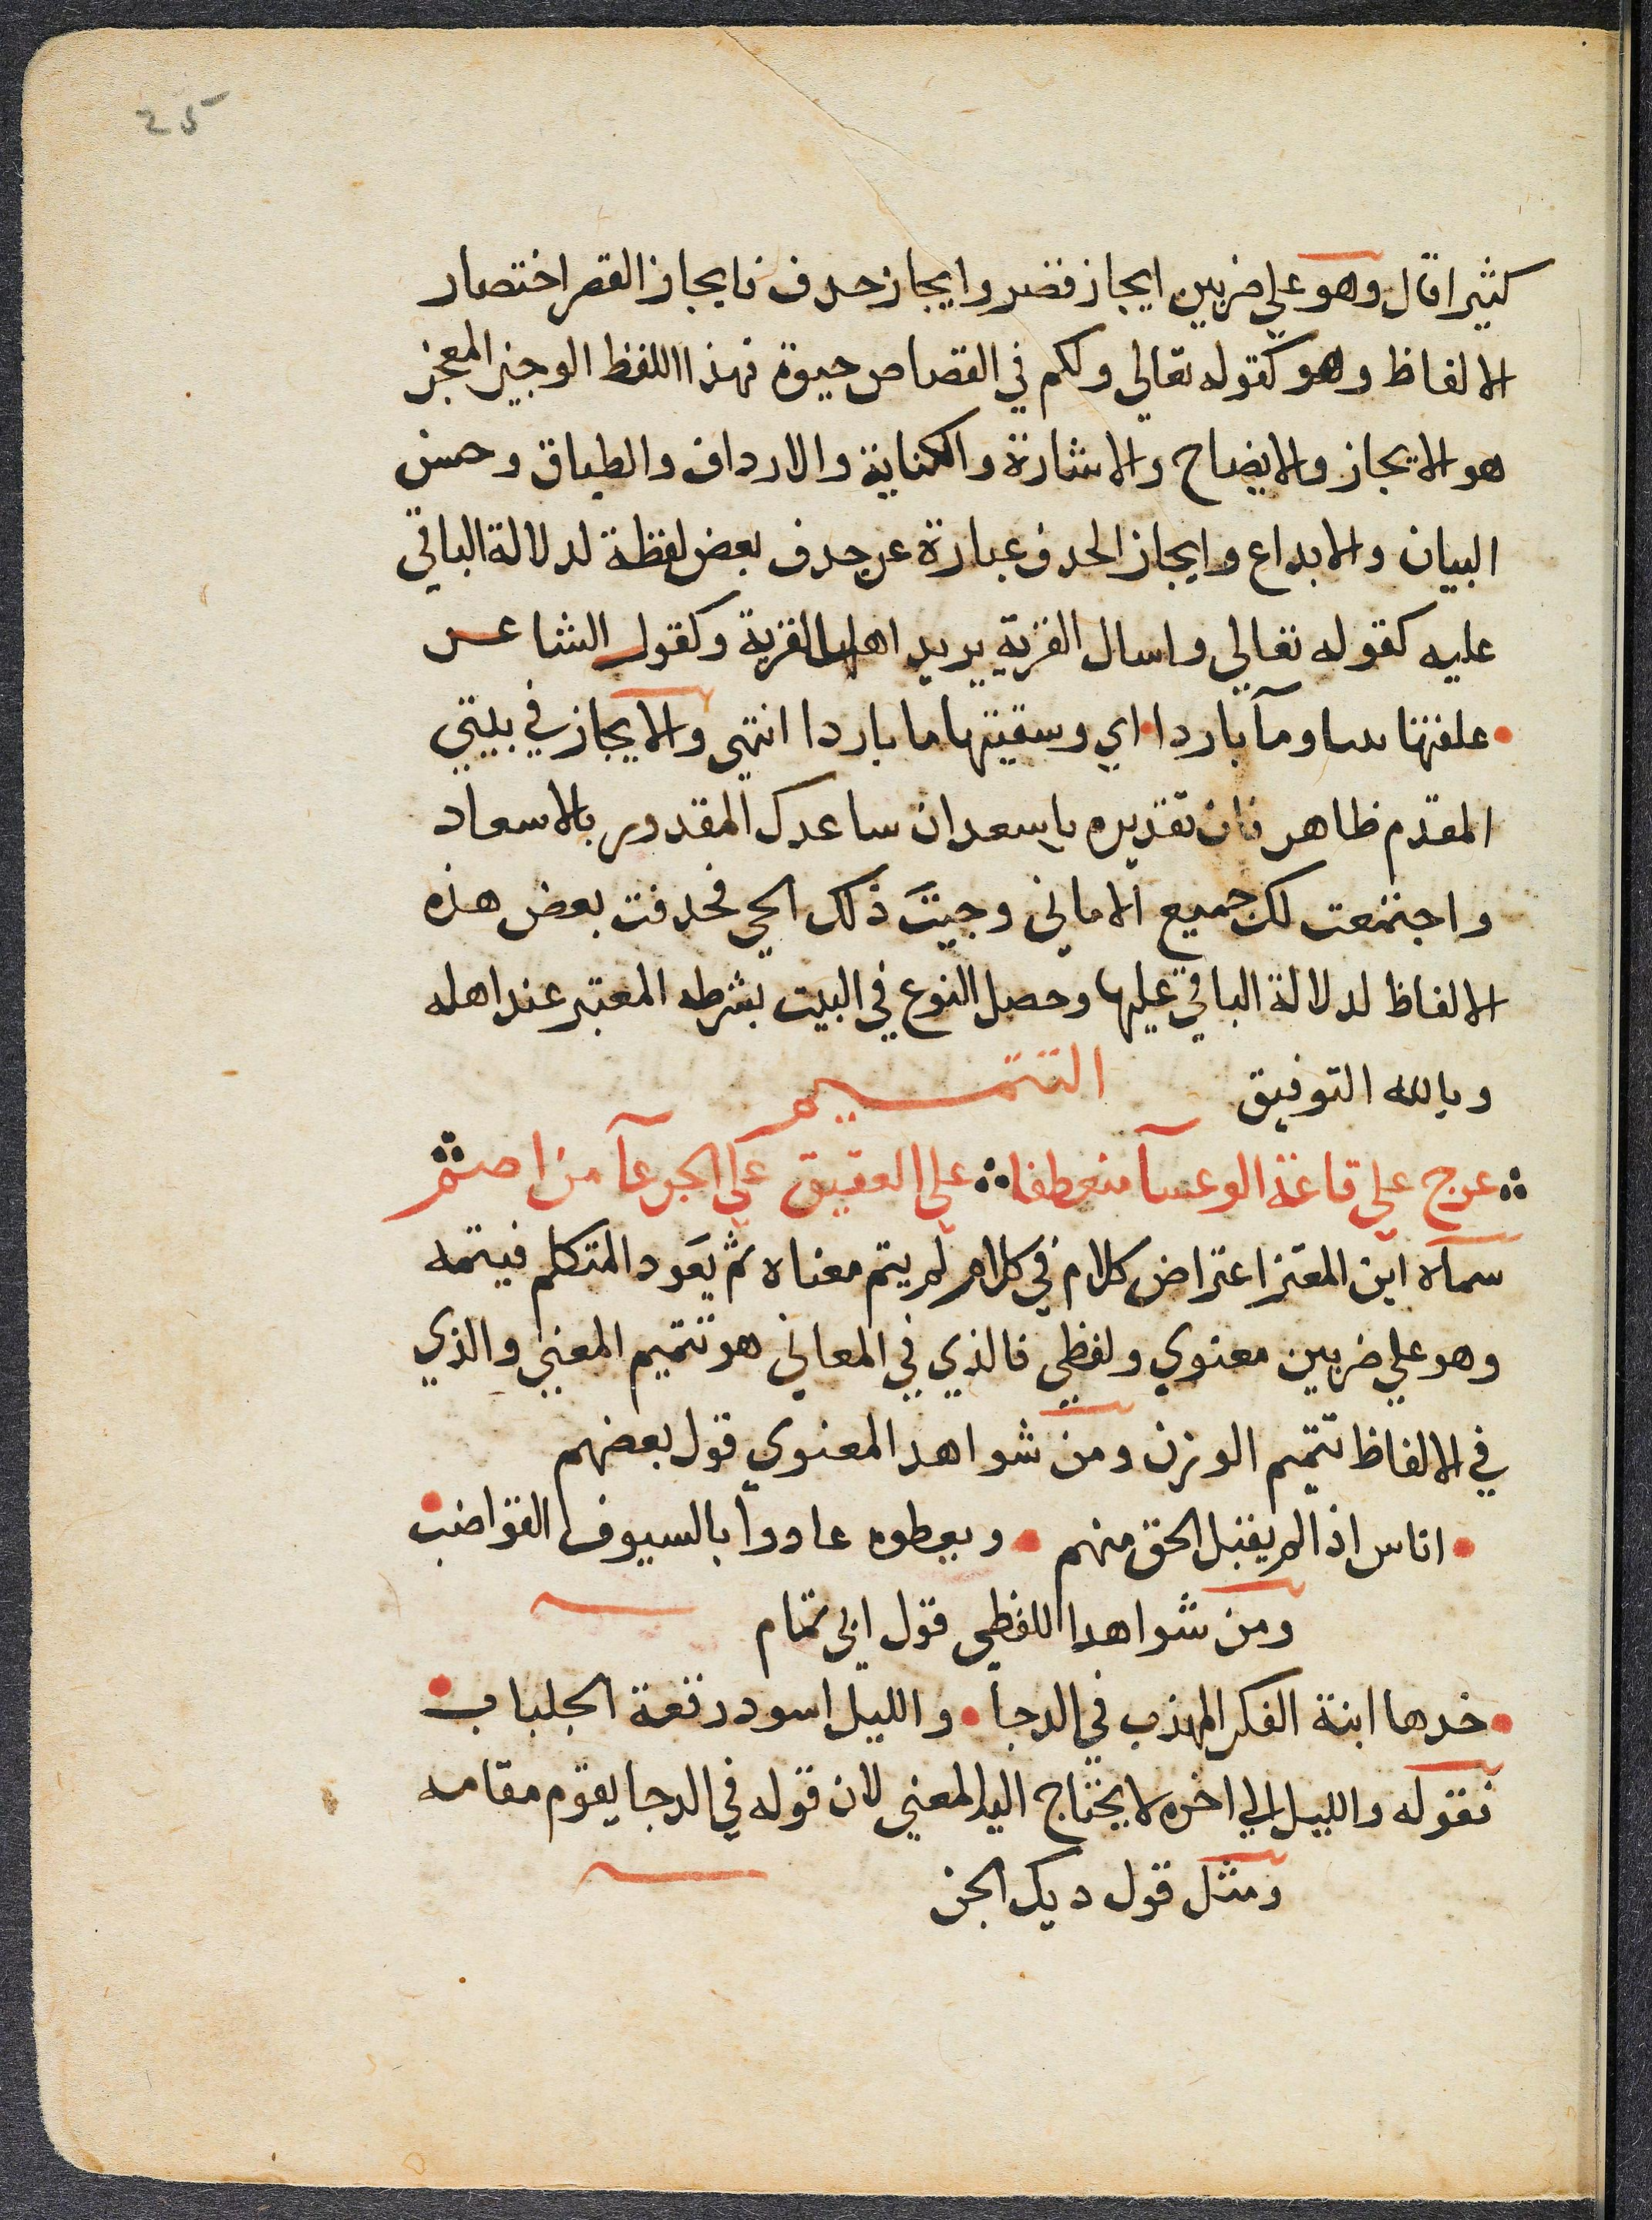 25
كثيرا قال وهو علي ضربين ايجاز قصر وايجاز حدف فايجاز القصر اختصار
الالفاظ وهو كقوله تعالي ولكم في القصاص حيوة فهذا اللفظ الوجيز المعجز
هو الايجاز والايضاح والاشارة والكناية والارداف والطباق وحسن
البيان والابداع وايجاز الحدف عبارة عن حدف بعض لفظة لدلالة الباقي
عليه كقوله تعالي واسال القرية يريد اهل القرية وكقول الشاعر
علفتها تبنا ومآ باردا اي وسقيتها ما باردا انتهي والايجاز في بيتي
المقدم ظاهر فان تقديره ياسعد ان ساعدك المقدور بالاسعاد
واجتمعت لك جميع الاماني وجيتَ ذلك الحي فحدفت بعض هذه
الالفاظ لدلالة الباقي عليها وحصل النوع في البيت بشرطه المعتبر عند اهله
وبالله التوفيق التتميم
عرج علي قاعة الوعسآ منعطفا علي العقيق علي الجرعآ من اضم
سماه ابن المعتز اعتراض كلام في كلام لم يتم معناه ثم يَعود المتكلم فيتمه
وهو علي ضربين معنوي ولفظي فالذي في المعاني هو تتميم المعني والذي
في الالفاظ تتميم الوزن ومن شواهد المعنوي قول بعضهم
اناس اذا لم يقبل الحق منهم ويعطوه عادوا بالسيوف القواضب
ومن شواهد اللفظي قول ابي تمام
خدها ابنة الفكر المهذب في الدجا والليل اسود رقعة الجلباب
فقوله والليل الي اخره لا يحتاج اليه المعني لان قوله في الدجا يقوم مقامه
ومثل قول ديك الجن